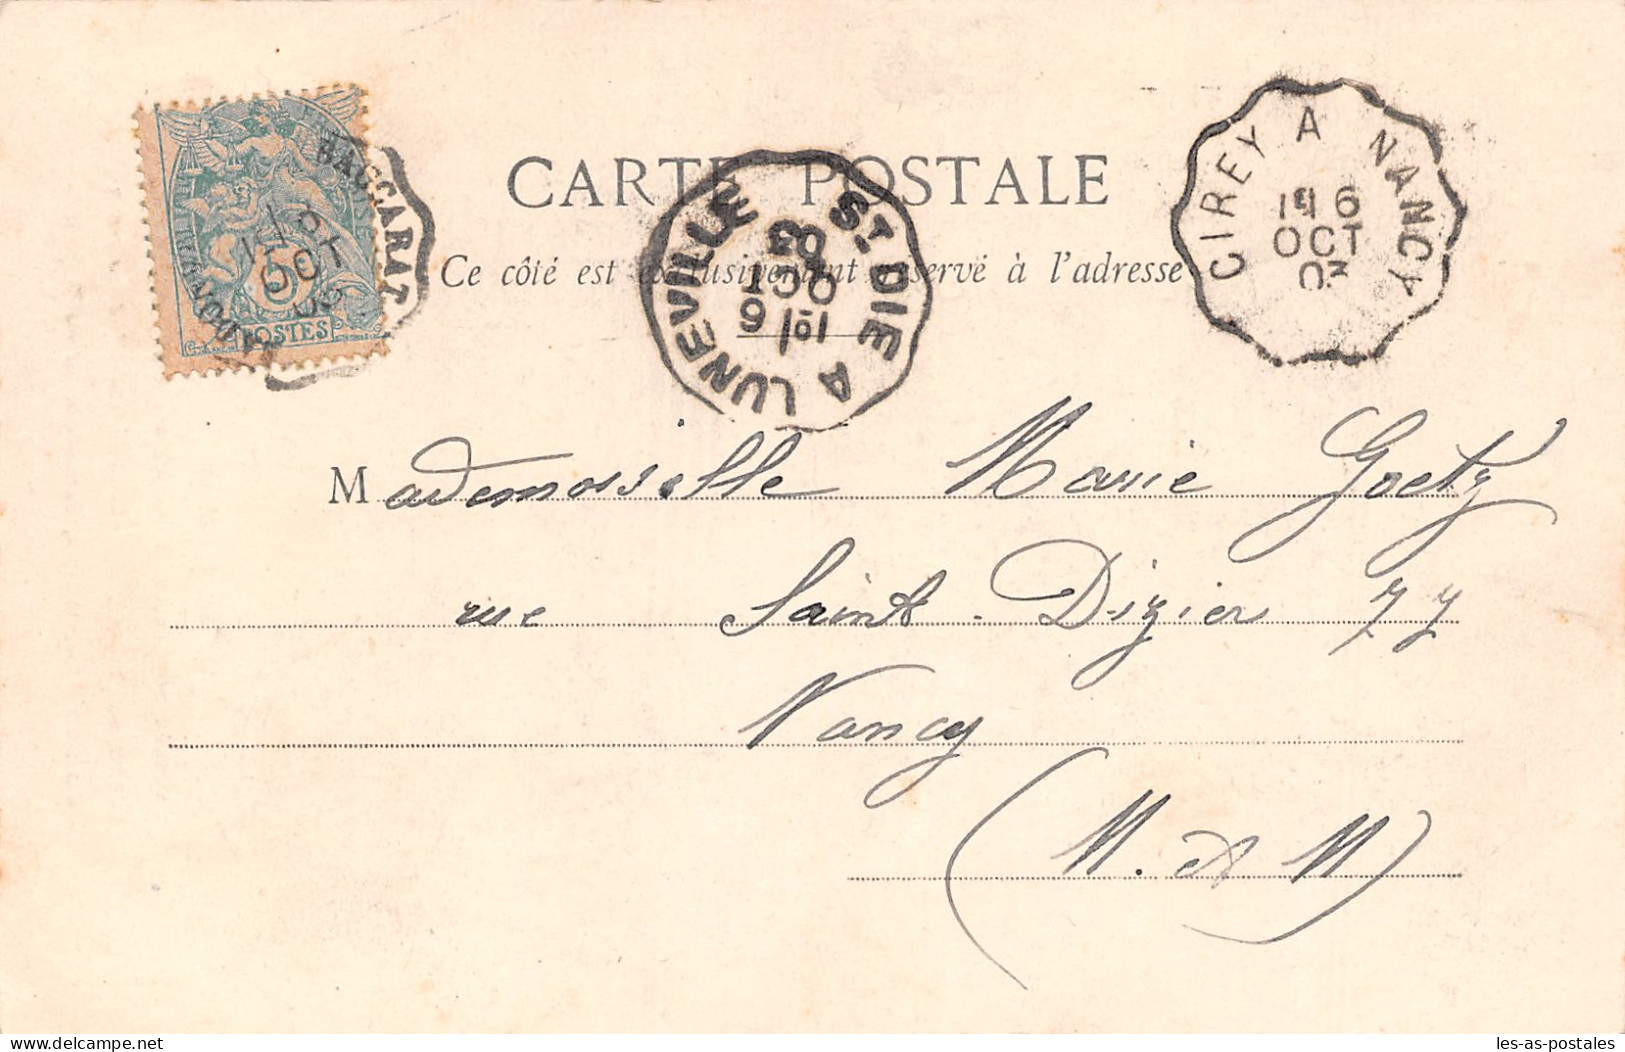 CARTE POSTALE
Ce côté est exclusivement réservé à l'adresse
BACCARAT
POSTES
ST. DIE A LUNEVILLE
16
OCT
03
CIREY A NANCY
16
OCT
03
Mademoiselle Marie Goetz
rue Saint-Dizier 77
Nancy
(M. et M)
delcampe.net
les-as-postales